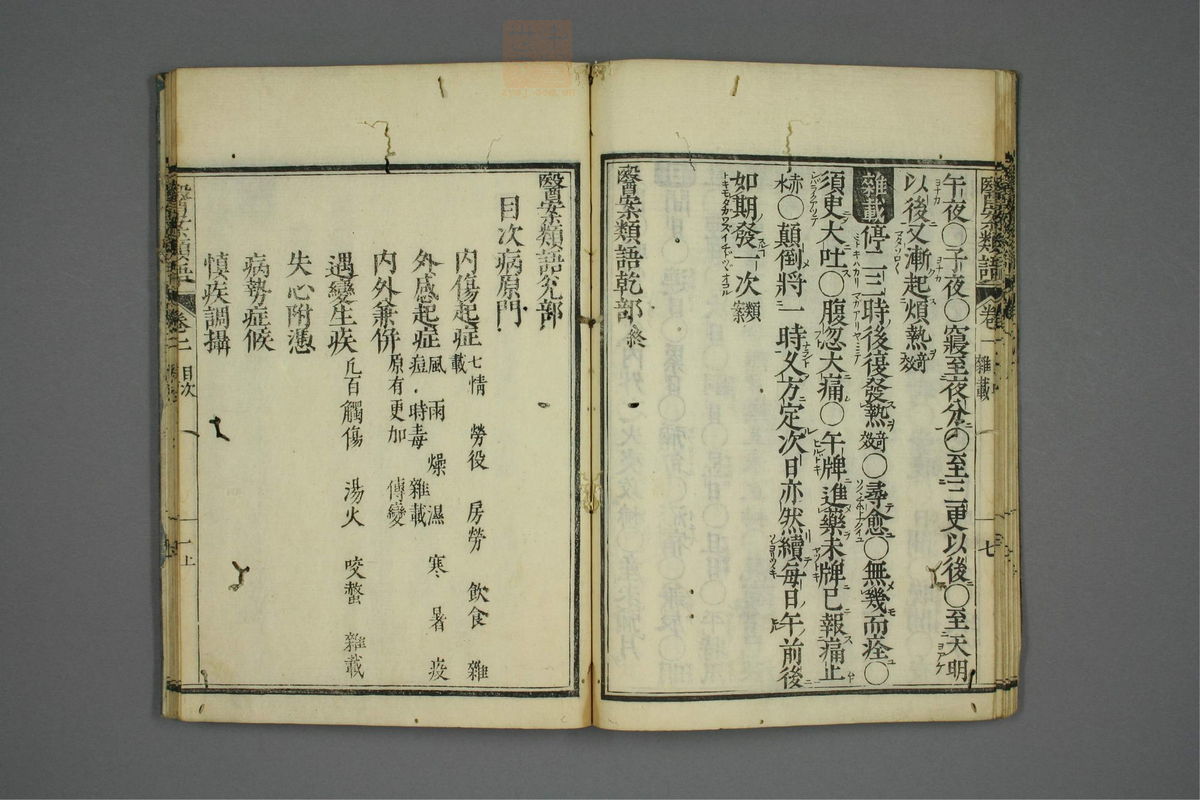 醫案類語 卷一 雜載 七
午夜〇子夜〇寢至夜分〇至三更以後〇至天明
以後又漸起煩熱竒效
雜載 停二三時後復發熱竒效〇尋愈〇無幾而痊〇
須臾大吐〇腹忽大痛〇午牌進藥未牌已報痛止
赤水〇顛倒將一時又方定次日亦然續每日午前後
如期發一次類案
醫案類語乾部終
醫案類語兊部
目次病原門
內傷起症 七情 勞役 房勞 飲食 雜載
外感起症 風 雨 燥 濕 寒 暑 疫 痘 時毒 雜載
內外兼併 原有更加 傳變
遇變生疾 凡百觸傷 湯火 咬螫 雜載
失心附憑
病勢症候
慎疾調攝
醫案類語 卷二 目次 一上